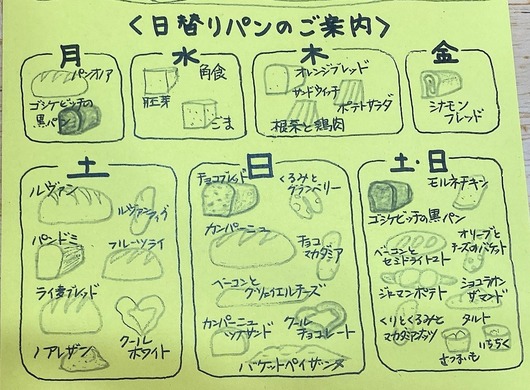 〈日替りパンのご案内〉
月
パンオノア
ゴシケビッチの
黒パン
水
角食
胚芽
ごま
木
オレンジブレッド
サンドウィッチ
ポテトサラダ
根菜と鶏肉
金
シナモン
ブレッド
土
ルヴァン
パンドミ
フルーツライ
ライ麦ブレッド
ノアレザン
クール
ホワイト
日
チョコブレッド
くるみと
クランベリー
カンパーニュ
チョコ
マカダミア
ベーコンと
グリュイエルチーズ
カンパーニュ
クール
チョコレート
バケットペイザンヌ
土・日
ゴシケビッチの黒パン
モルネチキン
ベーコンと
セミドライトマト
オリーブと
チーズのバケット
ジャーマンポテト
ショコラオン
ザマンド
くりとくるみと
マカダミアナッツ
タルト
さつまいも
いちぢく